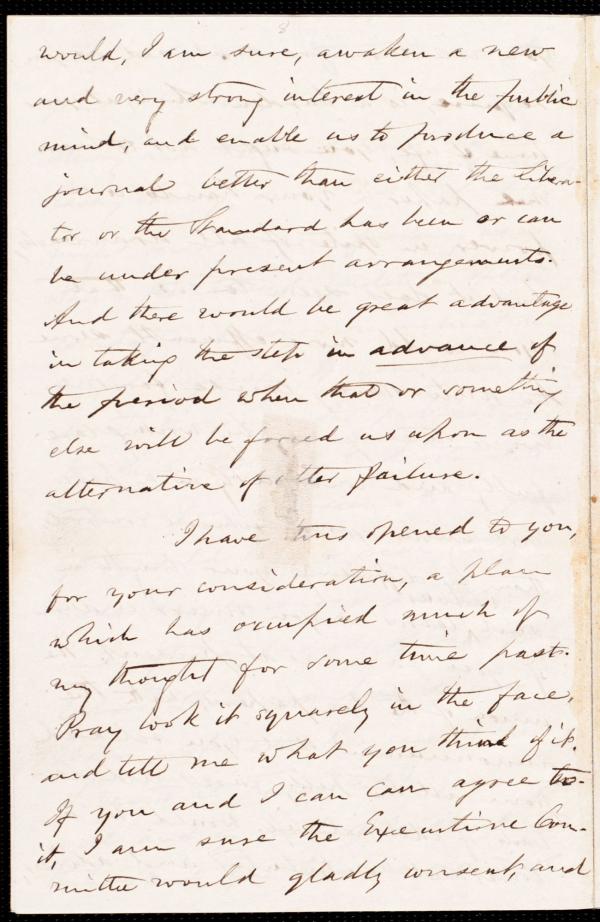 8
would, I am sure, awaken a new
and very strong interest in the public
mind, and enable us to produce a
journal better than either the Libera-
tor or the Standard has been or can
be under present arrangements.
And there would be great advantage
in taking the step in advance of
the period when that or something
else will be forced us upon as the
alternative of utter failure.
I have thus opened to you,
for your consideration, a plan
which has occupied much of
my thought for some time past.
Pray look it squarely in the face,
and tell me what you think of it.
If you and I can can agree to
it, I am sure the Executive Com-
mittee would gladly consent, and